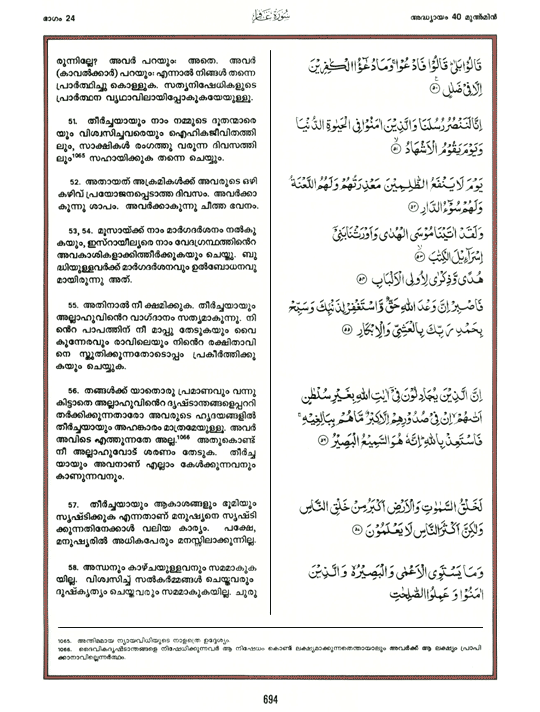 ഭാഗം 24
سُورَة غَافِر
അദ്ധ്യായം 40 മുഅ്മിൻ
രുന്നില്ലേ? അവർ പറയും: അതെ. അവർ
(കാവൽക്കാർ) പറയും: എന്നാൽ നിങ്ങൾ തന്നെ
പ്രാർത്ഥിച്ചു കൊള്ളുക. സത്യനിഷേധികളുടെ
പ്രാർത്ഥന വൃഥാവിലായിപ്പോകുകയേയുള്ളൂ.
51. തീർച്ചയായും നാം നമ്മുടെ ദൂതന്മാരെ
യും വിശ്വസിച്ചവരെയും ഐഹികജീവിതത്തി
ലും, സാക്ഷികൾ രംഗത്തു വരുന്ന ദിവസത്തി
ലും1065 സഹായിക്കുക തന്നെ ചെയ്യും.
52. അതായത് അക്രമികൾക്ക് അവരുടെ ഒഴി
കഴിവ് പ്രയോജനപ്പെടാത്ത ദിവസം. അവർക്കാ
കുന്നു ശാപം. അവർക്കാകുന്നു ചീത്ത ഭവനം.
53, 54. മൂസായ്ക്ക് നാം മാർഗദർശനം നൽകു
കയും, ഇസ്റായീല്യരെ നാം വേദഗ്രന്ഥത്തിൻെറ
അവകാശികളാക്കിത്തീർക്കുകയും ചെയ്തു. ബു
ദ്ധിയുള്ളവർക്ക് മാർഗദർശനവും ഉൽബോധനവു
മായിരുന്നു അത്.
55. അതിനാൽ നീ ക്ഷമിക്കുക. തീർച്ചയായും
അല്ലാഹുവിൻെറ വാഗ്ദാനം സത്യമാകുന്നു. നി
ൻെറ പാപത്തിന് നീ മാപ്പു തേടുകയും വൈ
കുന്നേരവും രാവിലെയും നിൻെറ രക്ഷിതാവി
നെ സ്തുതിക്കുന്നതോടൊപ്പം പ്രകീർത്തിക്കു
കയും ചെയ്യുക.
56. തങ്ങൾക്ക് യാതൊരു പ്രമാണവും വന്നു
കിട്ടാതെ അല്ലാഹുവിൻെറ ദൃഷ്ടാന്തങ്ങളെപ്പററി
തർക്കിക്കുന്നതാരോ അവരുടെ ഹൃദയങ്ങളിൽ
തീർച്ചയായും അഹങ്കാരം മാത്രമേയുള്ളൂ. അവർ
അവിടെ എത്തുന്നതേ അല്ല.1066 അതുകൊണ്ട്
നീ അല്ലാഹുവോട് ശരണം തേടുക. തീർച്ച
യായും അവനാണ് എല്ലാം കേൾക്കുന്നവനും
കാണുന്നവനും.
57. തീർച്ചയായും ആകാശങ്ങളും ഭൂമിയും
സൃഷ്ടിക്കുക എന്നതാണ് മനുഷ്യനെ സൃഷ്ടി
ക്കുന്നതിനേക്കാൾ വലിയ കാര്യം. പക്ഷേ,
മനുഷ്യരിൽ അധികപേരും മനസ്സിലാക്കുന്നില്ല.
58. അന്ധനും കാഴ്ചയുള്ളവനും സമമാകുക
യില്ല. വിശ്വസിച്ച് സൽകർമ്മങ്ങൾ ചെയ്തവരും
ദുഷ്കൃത്യം ചെയ്തവരും സമമാകുകയില്ല. ചുരു
قَالُوا بَلَىٰ قَالُوا فَادْعُوا وَمَا دُعَٰٓؤُا الْكَٰفِرِينَ
إِلَّا فِي ضَلَٰلٍ ٥٠
إِنَّا لَنَنصُرُ رُسُلَنَا وَالَّذِينَ آمَنُوا فِي الْحَيَوٰةِ الدُّنْيَا
وَيَوْمَ يَقُومُ الْأَشْهَادُ ٥١
يَوْمَ لَا يَنفَعُ الظَّٰلِمِينَ مَعْذِرَتُهُمْ وَلَهُمُ اللَّعْنَةُ
وَلَهُمْ سُوءُ الدَّارِ ٥٢
وَلَقَدْ آتَيْنَا مُوسَى الْهُدَىٰ وَأَوْرَثْنَا بَنِي
إِسْرَآءِيلَ الْكِتَٰبَ ٥٣
هُدًى وَذِكْرَىٰ لِأُولِي الْأَلْبَابِ ٥٤
فَاصْبِرْ إِنَّ وَعْدَ اللَّهِ حَقٌّ وَاسْتَغْفِرْ لِذَنبِكَ وَسَبِّحْ
بِحَمْدِ رَبِّكَ بِالْعَشِيِّ وَالْإِبْكَارِ ٥٥
إِنَّ الَّذِينَ يُجَادِلُونَ فِي آيَٰتِ اللَّهِ بِغَيْرِ سُلْطَٰنٍ
أَتَىٰهُمْ إِن فِي صُدُورِهِمْ إِلَّا كِبْرٌ مَّا هُم بِبَالِغِيهِ
فَاسْتَعِذْ بِاللَّهِ إِنَّهُ هُوَ السَّمِيعُ الْبَصِيرُ ٥٦
لَخَلْقُ السَّمَٰوَٰتِ وَالْأَرْضِ أَكْبَرُ مِنْ خَلْقِ النَّاسِ
وَلَٰكِنَّ أَكْثَرَ النَّاسِ لَا يَعْلَمُونَ ٥٧
وَمَا يَسْتَوِي الْأَعْمَىٰ وَالْبَصِيرُ وَالَّذِينَ
آمَنُوا وَعَمِلُوا الصَّٰلِحَٰتِ
1065. അന്തിമമായ ന്യായവിധിയുടെ നാളത്രെ ഉദ്ദേശ്യം.
1066. ദൈവികദൃഷ്ടാന്തങ്ങളെ നിഷേധിക്കുന്നവർ ആ നിഷേധം കൊണ്ട് ലക്ഷ്യമാക്കുന്നതെന്തായാലും അവർക്ക് ആ ലക്ഷ്യം പ്രാപി
ക്കാനാവില്ലെന്നർത്ഥം.
694